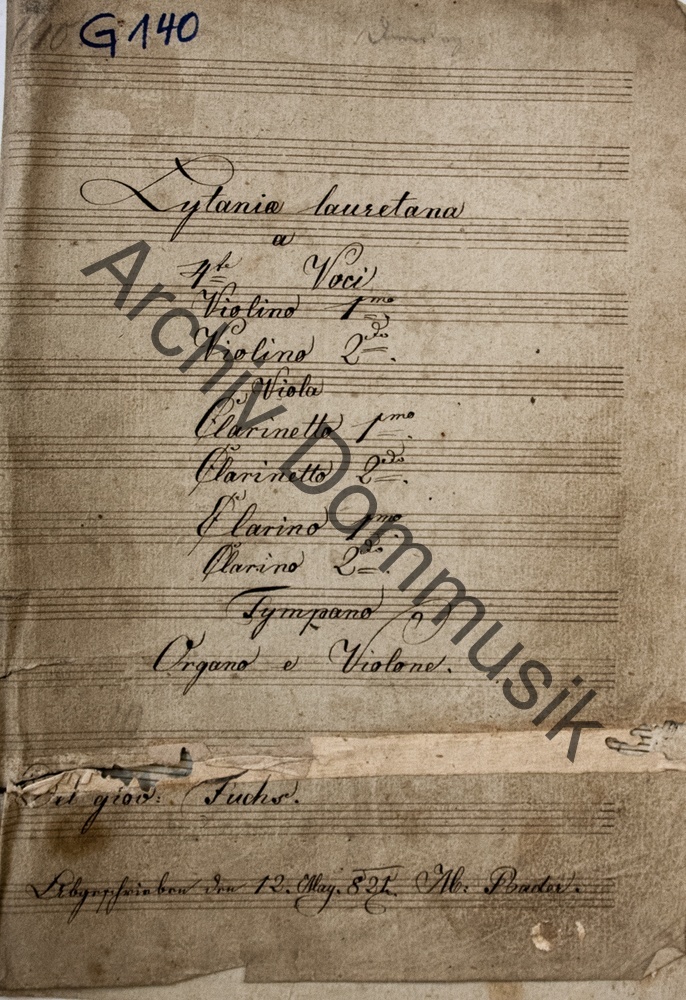 G 140
Lytaniæ lauretana
a
4te Voci
Violino 1mo
Violino 2do.
Viola
Clarinetto 1mo
Clarinetto 2do.
Clarino 1mo
Clarino 2do.
Tympano
Organo e Violone.
giov: Fuchs.
Abgeschrieben den 12. May. 821. M: Rader.
Archiv Dommusik